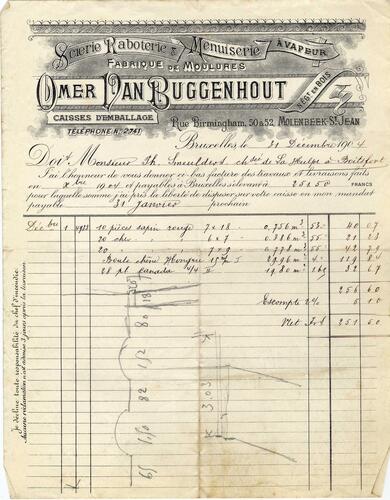 Scierie Raboterie & Menuiserie À VAPEUR
FABRIQUE DE MOULURES
OMER VAN BUGGENHOUT
NÉGT EN BOIS
CAISSES D'EMBALLAGE
Rue Birmingham, 50 & 52, MOLENBEEK-ST-JEAN
TÉLÉPHONE No 2741
Bruxelles, le 31 Décembre 1904
Doit Monsieur Th. Smeulders chée de La Hulpe à Boitsfort
J'ai l'honneur de vous donner ci-bas facture des travaux et livraisons faits
en Xbre 1904 et payables à Bruxelles s'élevant à 251 50 FRANCS
pour laquelle somme j'ai pris la liberté de disposer sur votre caisse en mon mandat
payable 31 janvier prochain
Décbre 1 10 pièces sapin rouge 7 x 18 0,756 m³ 53.- 40 0
20 6 x 7 0.386 m³ 55
20 7 x 9 0.778 m³ 55 42
Boule chêne Hongrie 4.- 119 8
28 pl canada 4/4 II 19.80 32 6
256 60
Escompte 2% 5 10
Net Frs 251 50
Je décline toute responsabilité du chef d'incendie.
Aucune réclamation n'est admise 3 jours après la livraison.
80
152
82
3.03
150
65